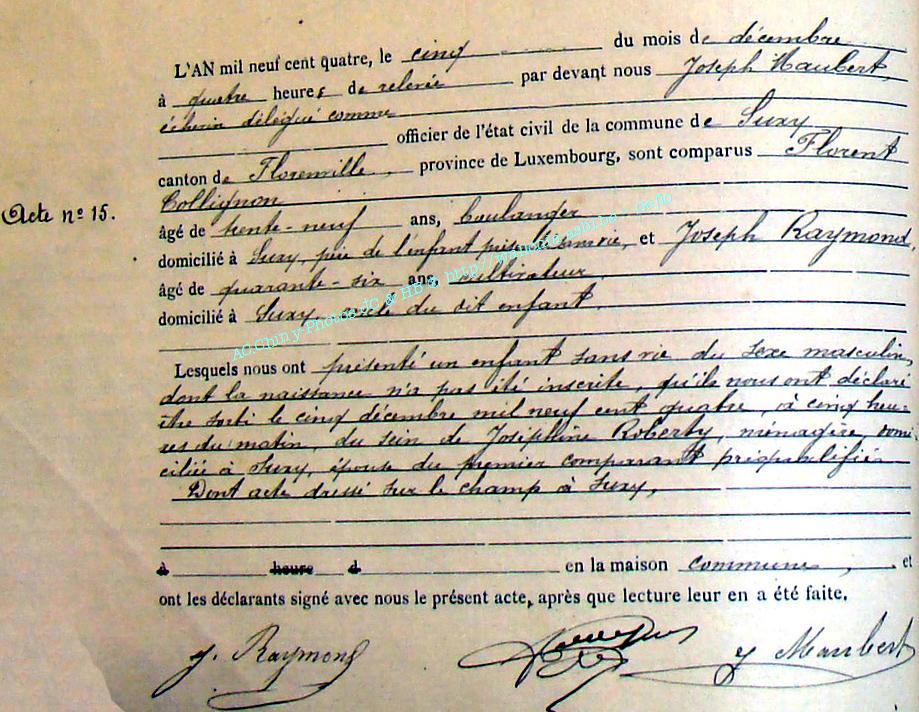 L'AN mil neuf cent quatre, le cinq du mois de décembre
à quatre heures de relevée par devant nous Joseph Maubert,
échevin délégué comme
officier de l'état civil de la commune de Suxy
canton de Florenville, province de Luxembourg, sont comparus Florent
Collignon
Acte nº 15.
âgé de trente-neuf ans, boulanger
domicilié à Suxy, père de l'enfant présenté sans vie, et Joseph Raymond,
âgé de quarante-six ans, cultivateur,
domicilié à Suxy, oncle du dit enfant.
AC Chiny-Photos JC & HB @ http://
Lesquels nous ont présenté un enfant sans vie du sexe masculin,
dont la naissance n'a pas été inscrite, qu'ils nous ont déclaré
être sorti le cinq décembre mil neuf cent quatre, à cinq heu-
res du matin, du sein de Joséphine Roberty, ménagère, domi-
ciliée à Suxy, épouse du premier comparant préqualifié.
Dont acte dressé sur le champ à Suxy,
à heure d en la maison commune, et
ont les déclarants signé avec nous le présent acte, après que lecture leur en a été faite.
J. Raymond J Maubert